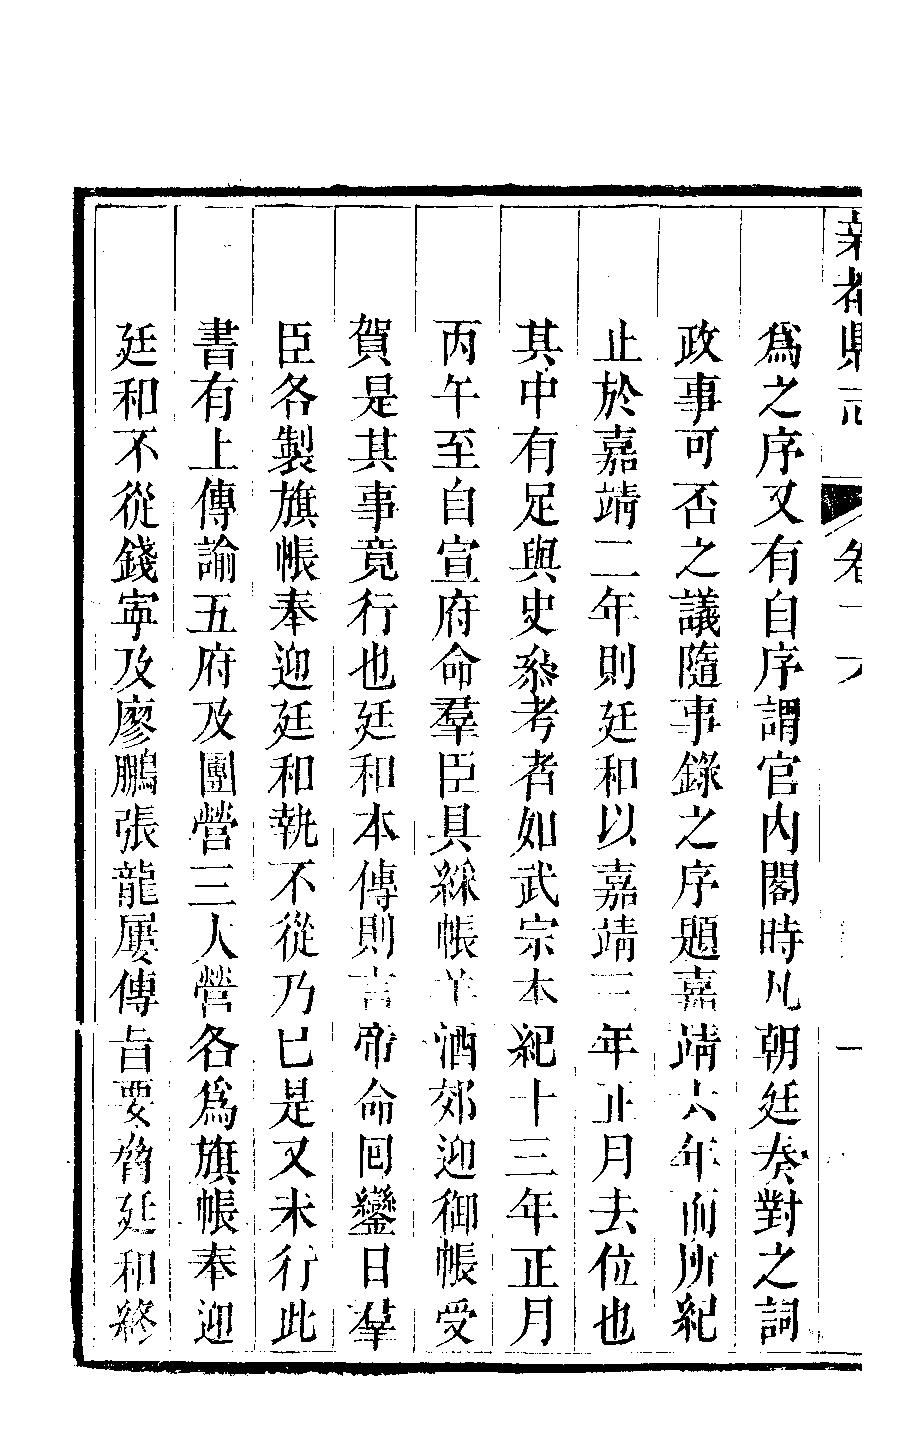 新都縣志 卷十六 一
爲之序又有自序謂官內閣時凡朝廷奏對之詞
政事可否之議隨事錄之序題嘉靖六年而所紀
止於嘉靖二年則廷和以嘉靖三年正月去位也
其中有足與史叅考者如武宗本紀十三年正月
丙午至自宣府命羣臣具綵帳羊酒郊迎御帳受
賀是其事竟行也廷和本傳則言帝命回鑾日羣
臣各製旗帳奉迎廷和執不從乃已是又未行此
書有上傳諭五府及團營三人營各爲旗帳奉迎
廷和不從錢寧及廖鵬張龍屢傳旨要脅廷和終